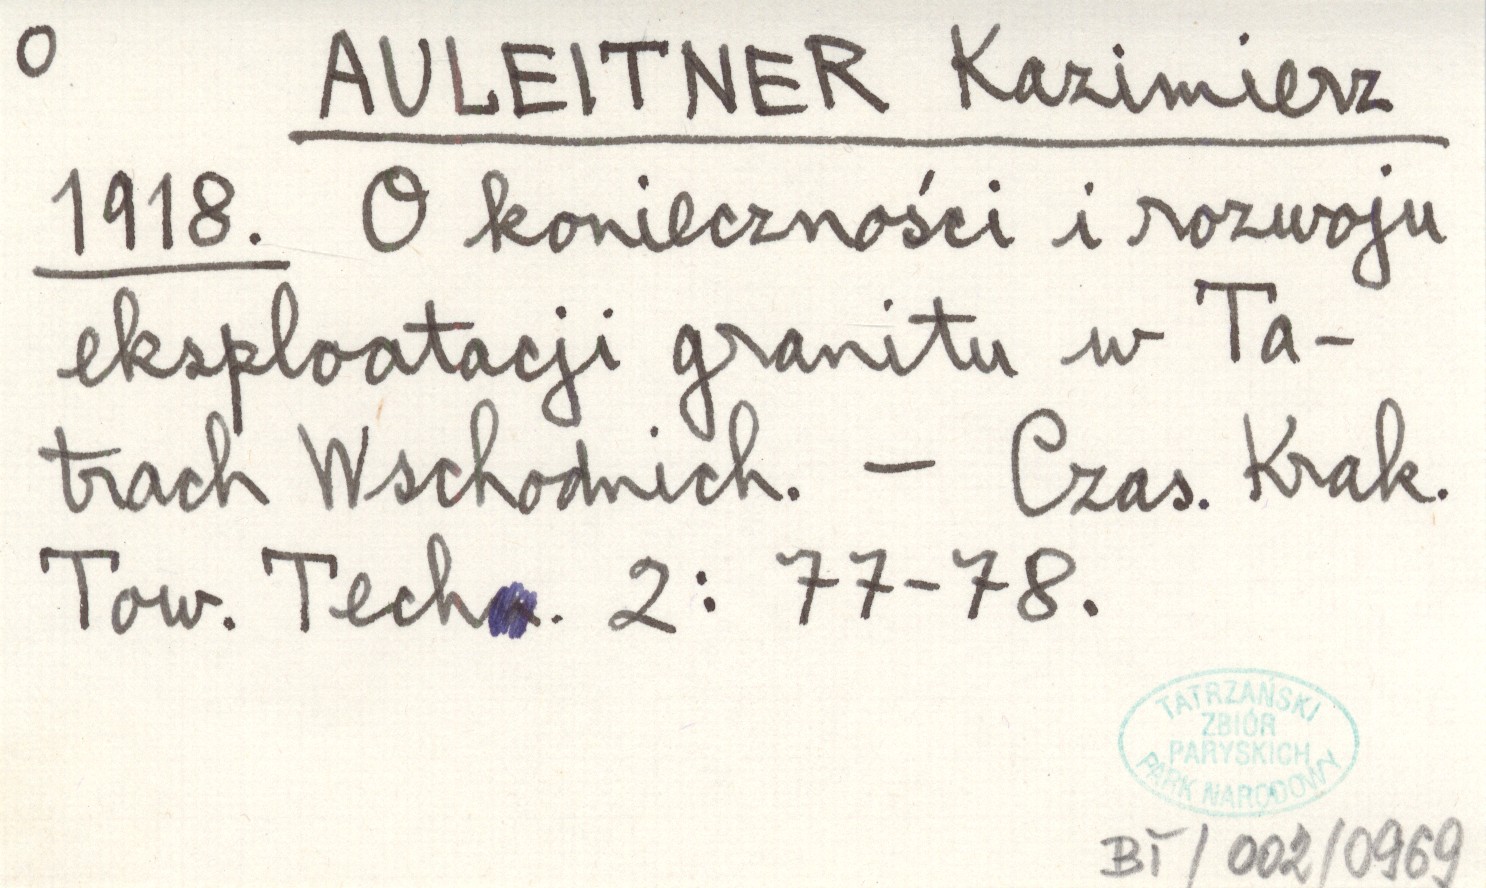 O AULEITNER Kazimierz
1918. O konieczności i rozwoju
eksploatacji granitu w Ta-
trach Wschodnich. — Czas. Krak.
Tow. Tech. 2: 77-78.
TATRZAŃSKI
ZBIÓR
PARYSKICH
PARK NARODOWY
BT/002/0969